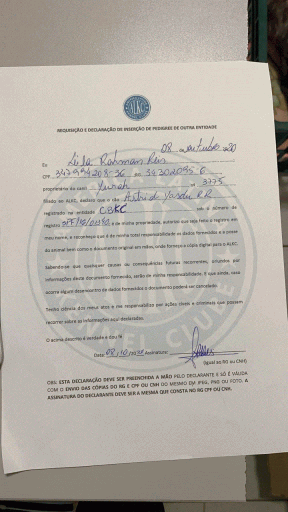 ALKC
REQUISIÇÃO E DECLARAÇÃO DE INSERÇÃO DE PEDIGREE DE OUTRA ENTIDADE
08 outubro 20
Eu
CPF RG
proprietário do canil nº 3775
filiado ao ALKC, declaro que o cão
registrado na entidade CBKC com o número de
registro é de minha propriedade, autorizo que seja feito o registro em
meu nome, e reconheço que é de minha total responsabilidade os dados fornecidos e a posse
do animal bem como o documento original em mãos, onde forneço a cópia digital para o ALKC.
Sabendo-se que quaisquer causas ou consequências futuras recorrentes, oriundos por
informações deste documento fornecido, serão de minha responsabilidade. E que ainda, caso
ocorra algum desencontro de dados fornecidos o documento poderá ser cancelado.
Tenho ciência dos meus atos e me responsabilizo por ações cíveis e criminais que possam
recorrer sobre as informações aqui declaradas.
O acima descrito é verdade e dou fé
Data: 08/10/ Assinatura:
(Igual ao RG ou CNH)
OBS: ESTA DECLARAÇÃO DEVE SER PREENCHIDA A MÃO PELO DECLARANTE E SÓ É VÁLIDA
COM O ENVIO DAS CÓPIAS DO RG E CPF OU CNH DO MESMO EM JPEG, PNG OU FOTO. A
ASSINATURA DO DECLARANTE DEVE SER A MESMA QUE CONSTA NO RG CPF OU CNH.